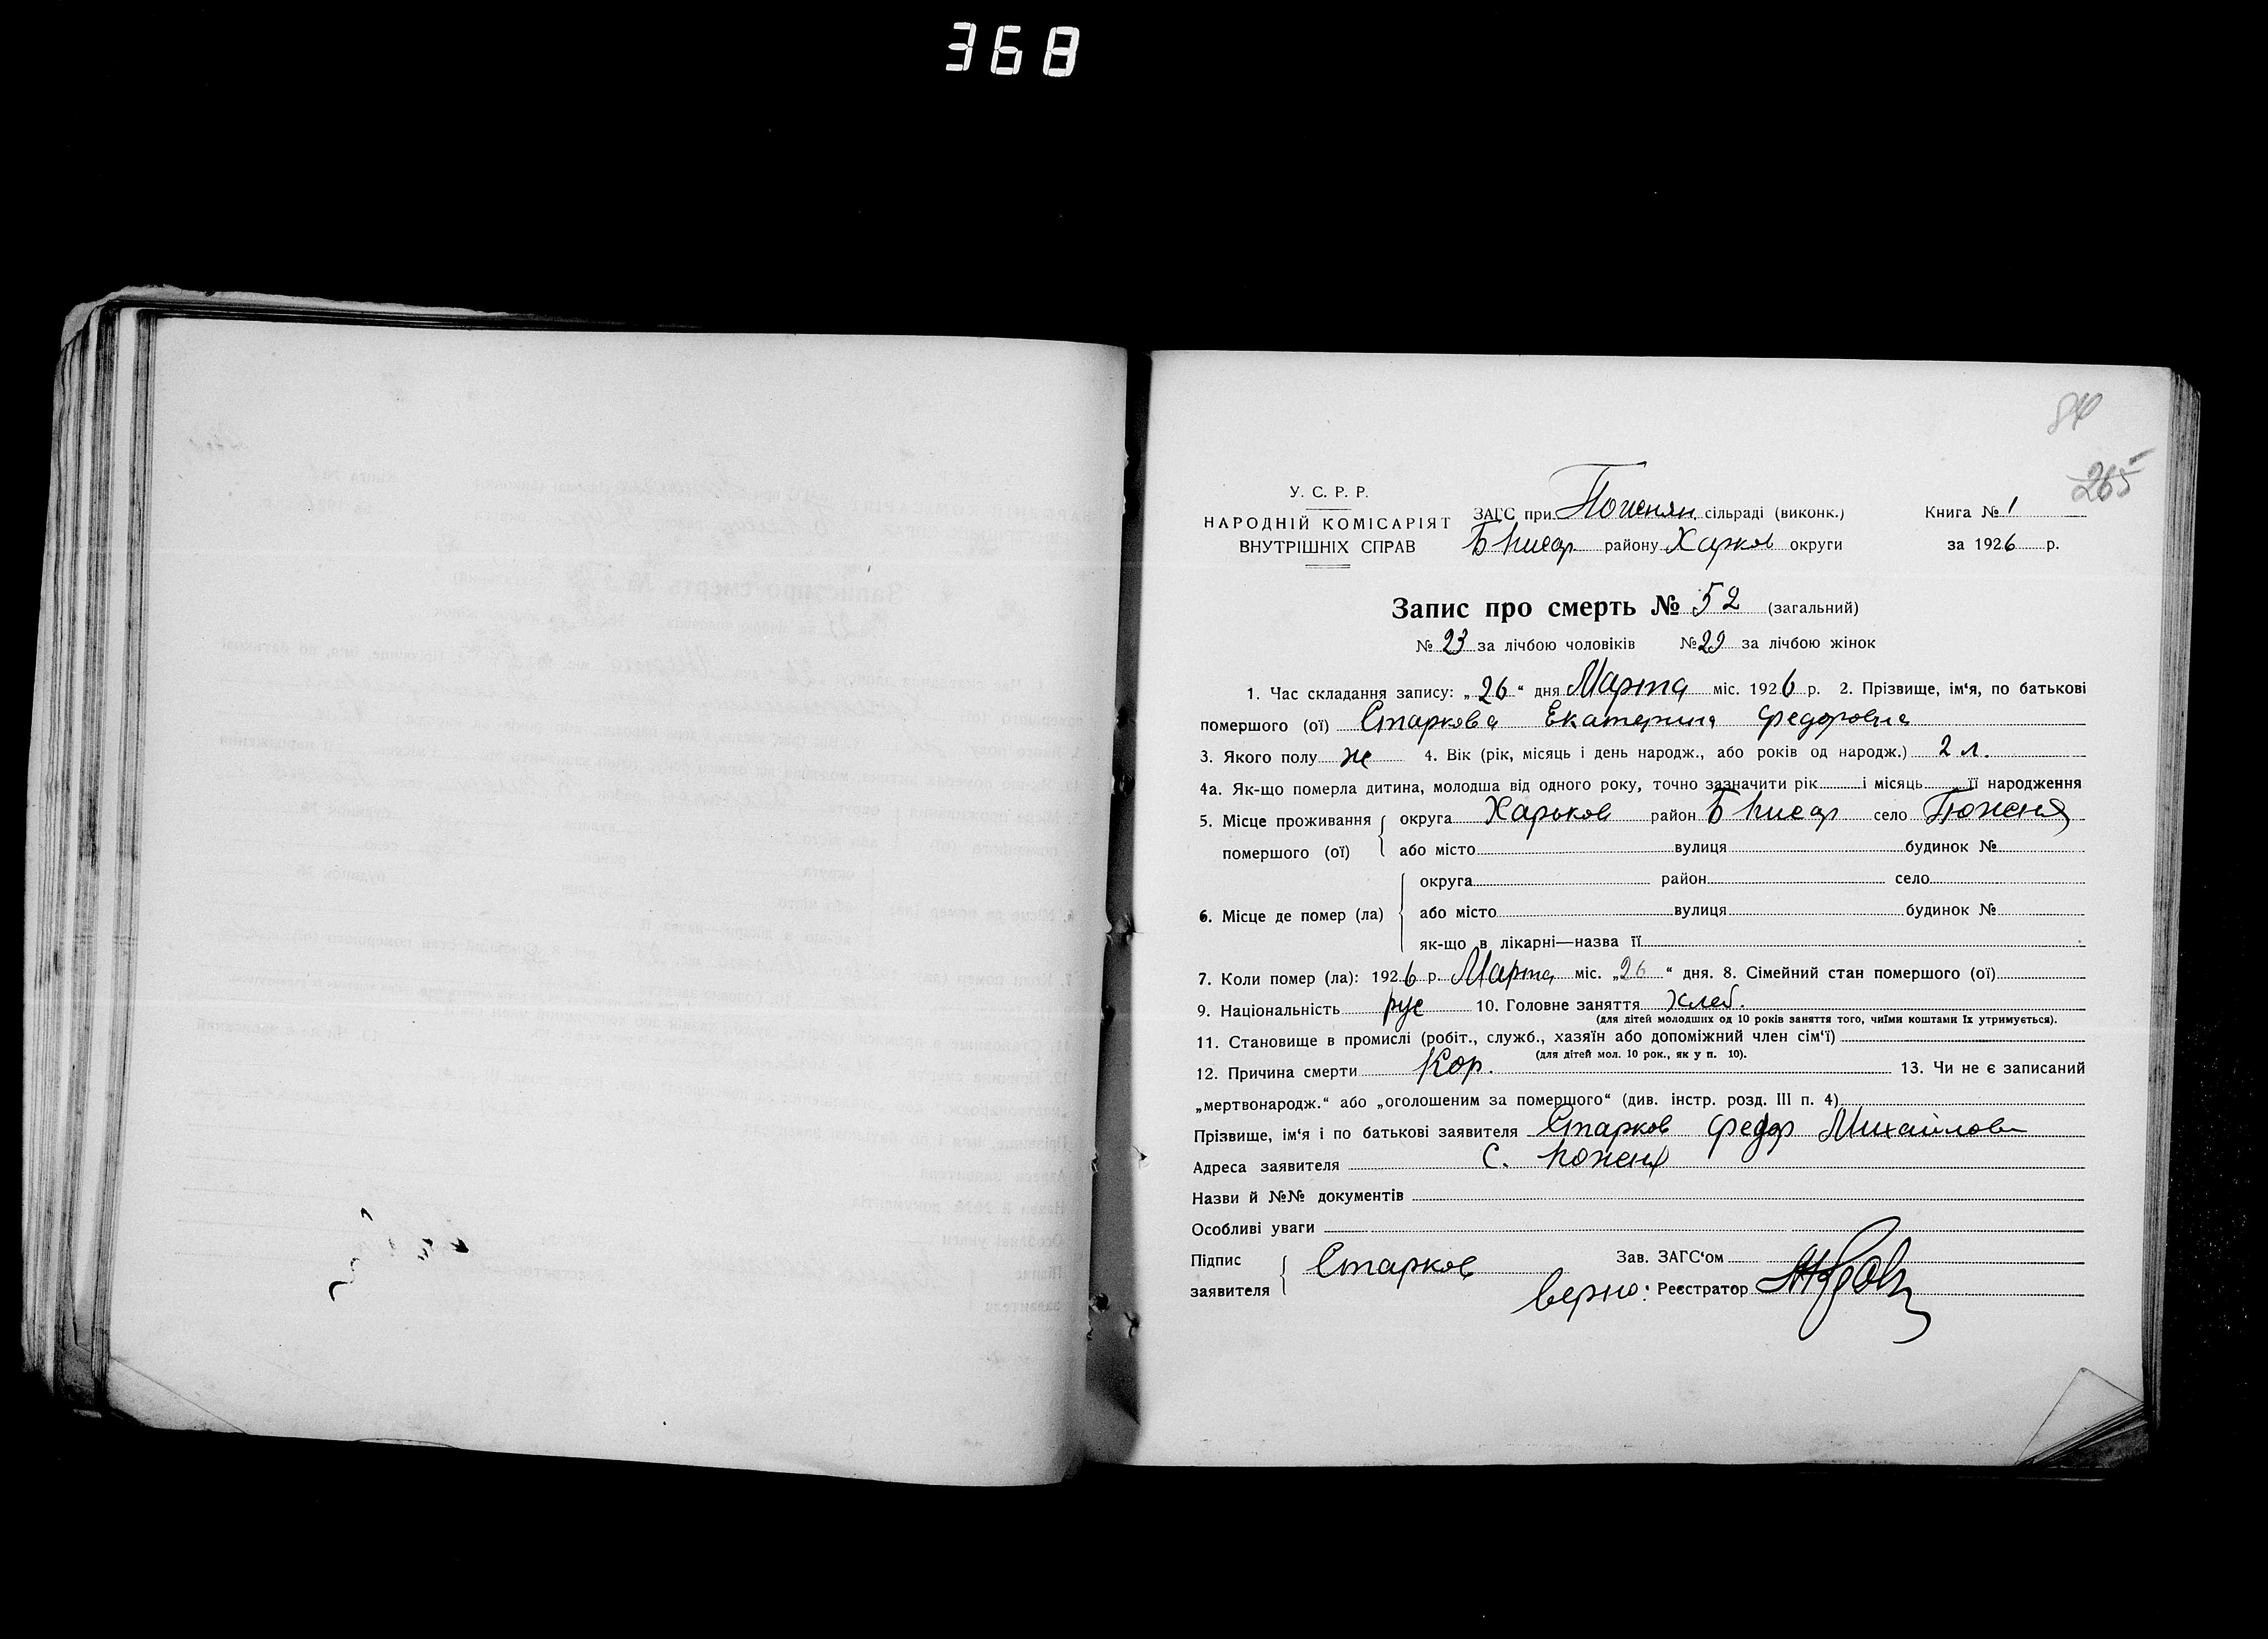 368
84
265
У. С. Р. Р.
НАРОДНІЙ КОМІСАРІЯТ
ВНУТРІШНІХ СПРАВ
ЗАГС при Поженян. сільраді (виконк.)
Б Писар району Харков округи
Книга № 1
за 1926 р.
Запис про смерть № 52 (загальний)
№ 23 за лічбою чоловіків № 29 за лічбою жінок
1. Час складання запису: „26“ дня Марта міс. 1926 р. 2. Прізвище, ім‘я, по батькові
помершого (ої) Старкова Екатерина Федоровна
3. Якого полу ж 4. Вік (рік, місяць і день народж., або років од народж.) 2 л.
4а. Як-що померла дитина, молодша від одного року, точно зазначити рік і місяць її народження
5. Місце проживання помершого (ої) округа Харьков район Б Писар село Поженя
або місто вулиця будинок №
6. Місце де помер (ла) округа район село
або місто вулиця будинок №
як-що в лікарні—назва її
7. Коли помер (ла): 1926 р. Марта міс. „26“ дня. 8. Сімейний стан помершого (ої)
9. Національність рус 10. Головне заняття хлеб.
(для дітей молодших од 10 років заняття того, чиїми коштами їх утримується).
11. Становище в промислі (робіт., служб., хазяїн або допоміжний член сім‘ї)
(для дітей мол. 10 рок., як у п. 10).
12. Причина смерти Кор. 13. Чи не є записаний
„мертвонародж.“ або „оголошеним за помершого“ (див. інстр. розд. III п. 4)
Прізвище, ім‘я і по батькові заявителя Старков Федор Михайлов
Адреса заявителя с. Поженя
Назви й №№ документів
Особливі уваги
Підпис заявителя Старков
Зав. ЗАГС‘ом
верно: Реєстратор